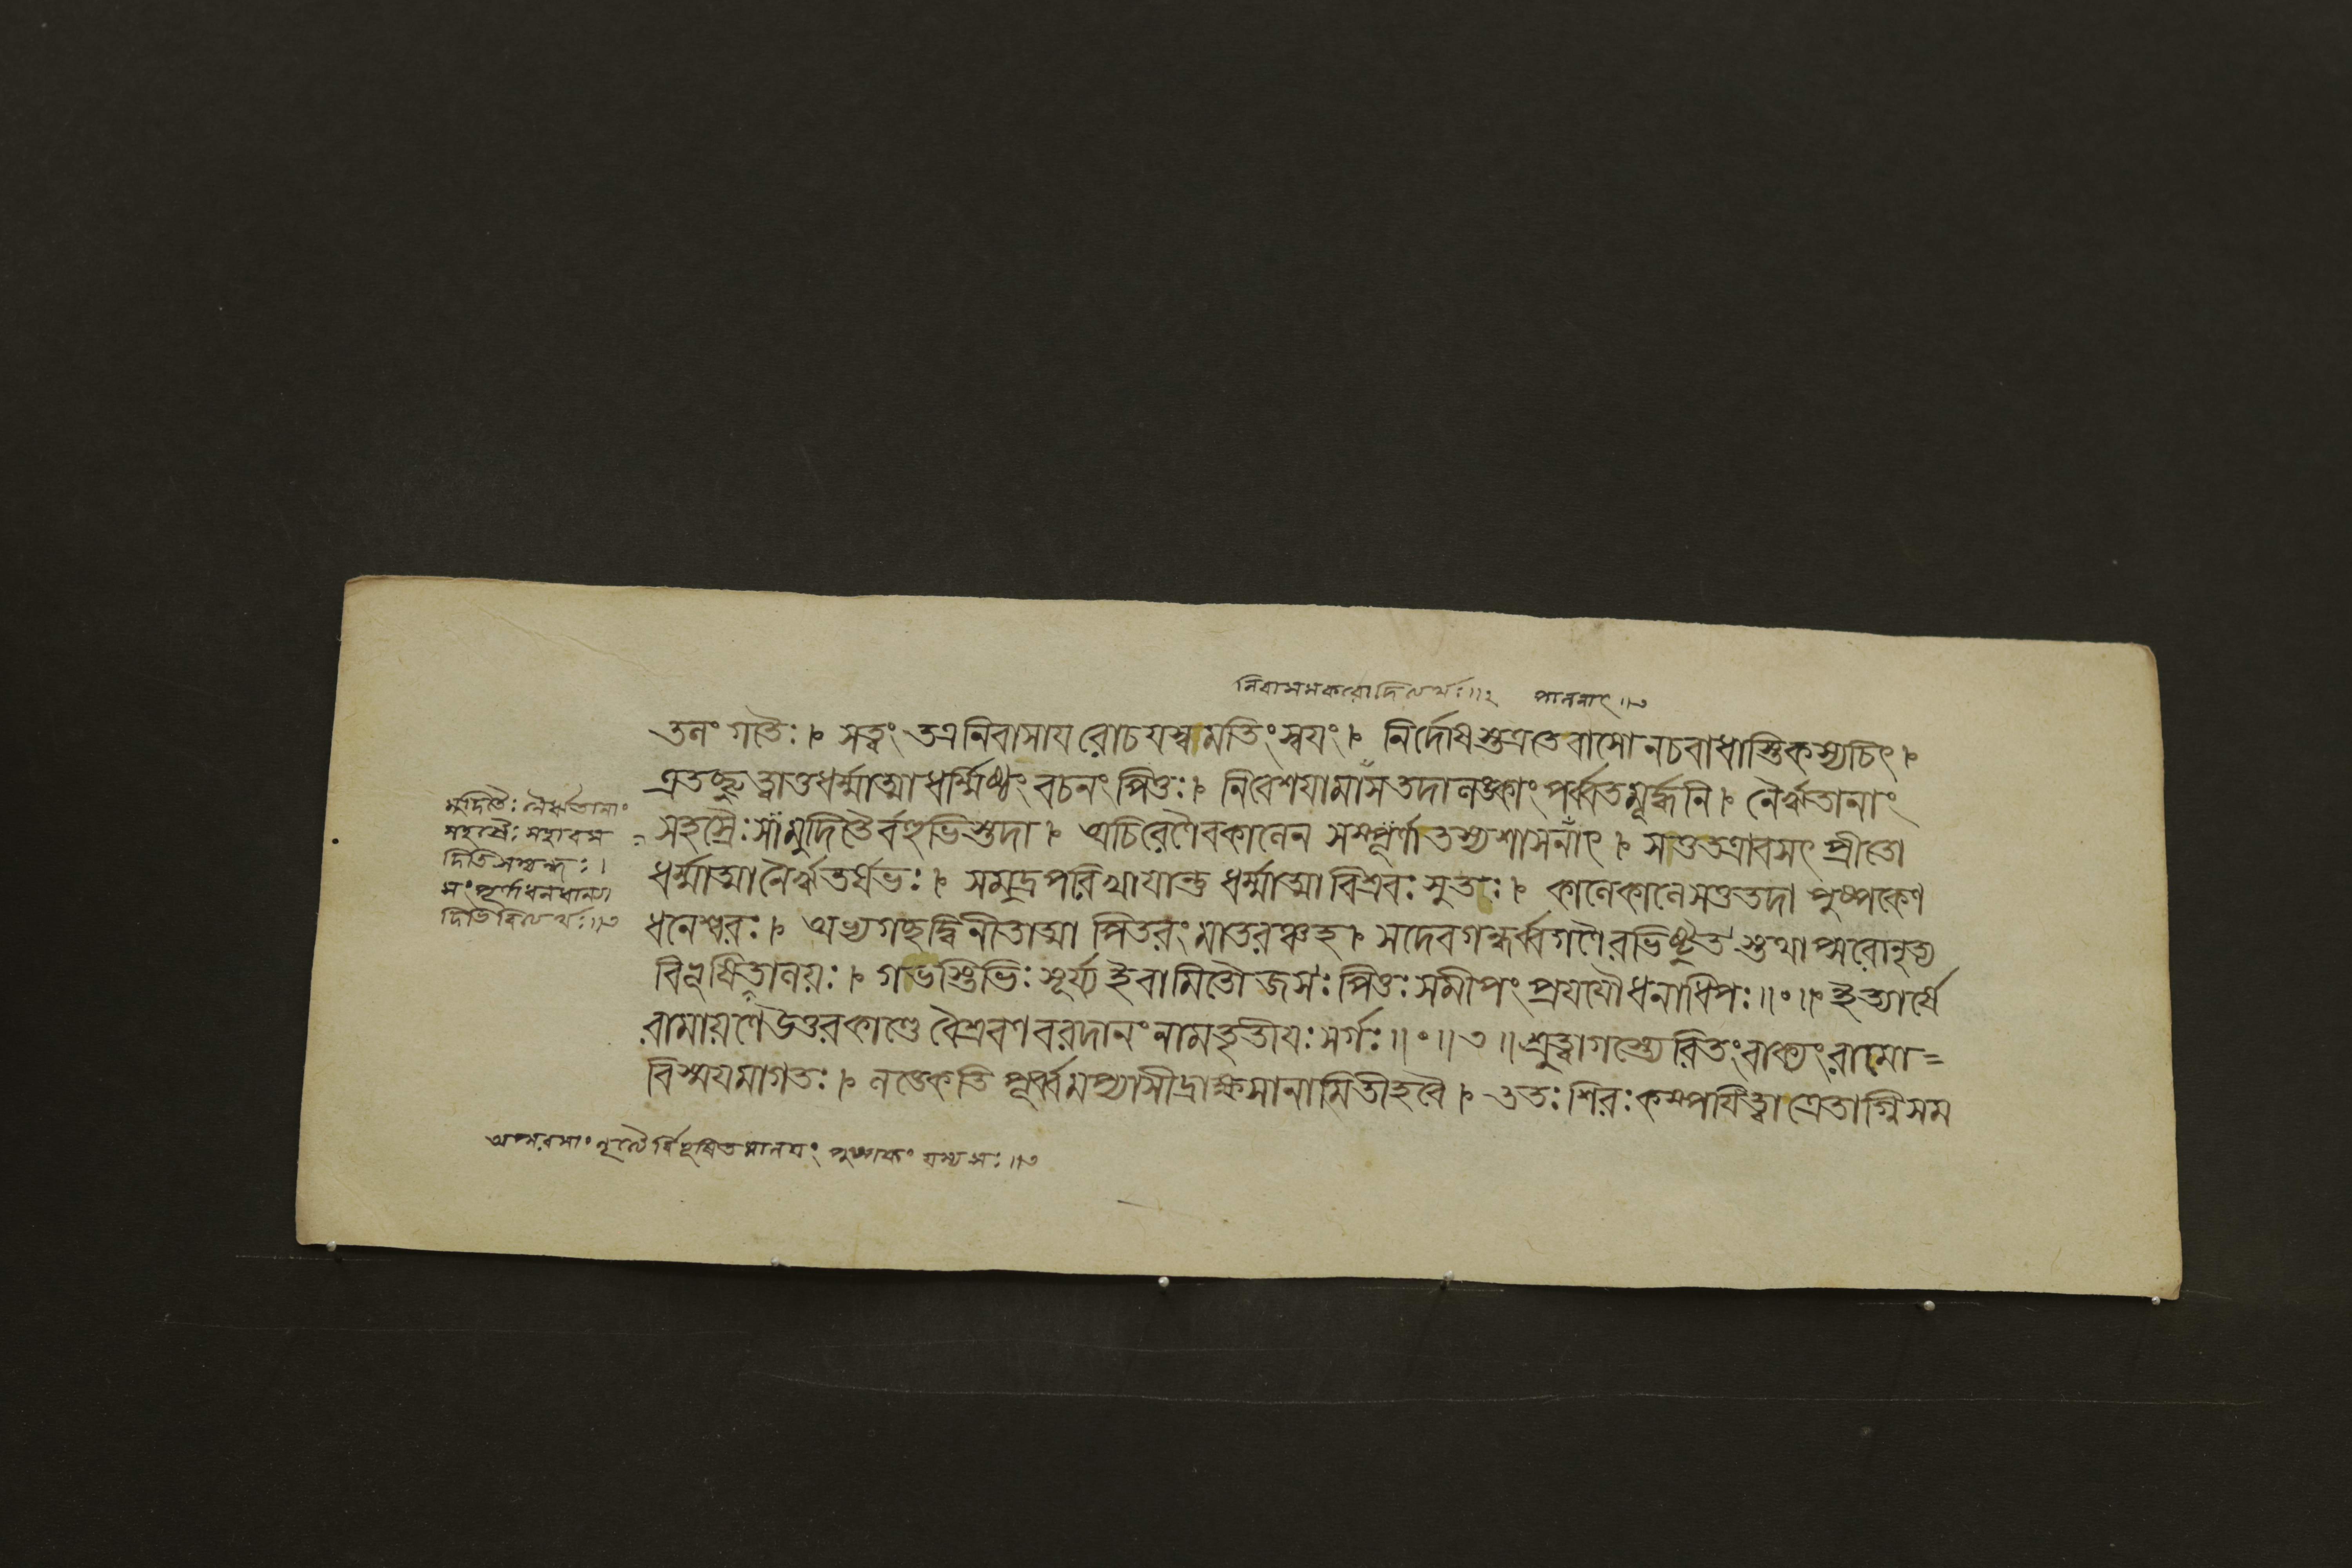 নিবাসমকরোদিত্যর্থঃ॥২ পালনাৎ॥৩
তলং গতৈঃ। সত্বং তত্রনিবাসায রোচযস্বমতিংস্বযং। নির্দোষস্তত্রতেবাসো নচবাধাস্তিকস্যচিৎ।
এতচ্ছ্রুত্বাতুধর্ম্মাত্মা ধর্ম্মিষ্ঠং বচনং পিতুঃ। নিবেশযামাসতদা লঙ্কাং পর্ব্বতমূর্দ্ধনি। নৈরৃতানাং
সহস্রৈঃ সংমুদিতৈর্বহুভিস্তদা। অচিরেণৈবকালেন সম্পূর্ণা তস্যশাসনাৎ। সতুতত্রাবসৎ প্রীতো
ধর্ম্মাত্মানৈরৃতর্ষভঃ। সমুদ্রপরিখাযান্তু ধর্ম্মাত্মা বিশ্রবঃ সুতঃ। কালেকালেসতুতদা পুষ্পকেণ
ধনেশ্বরঃ। অভ্যগচ্ছদ্বিনীতাত্মা পিতরং মাতরঞ্চহ। সদেবগন্ধর্ব্বগণৈরভিষ্টুত স্তথাপ্সরোনৃত্য
বিভূষিতালয়ঃ। গভস্তিভিঃ সূর্য্য ইবামিতৌজসঃ পিতুঃ সমীপং প্রযযৌ ধনাধিপঃ॥॰॥ ইত্যার্ষে
রামায়ণে উত্তরকাণ্ডে বৈশ্রবণ বরদানং নামতৃতীযঃ সর্গঃ॥॰॥৩॥ শ্রুত্বাগস্ত্যেরিতং বাক্যং রামো=
বিস্ময়মাগতঃ। লঙ্কেকতি পূর্ব্বমপ্যাসীদ্রাক্ষসানামিতীহবৈ। ততঃ শিরঃ কম্পযিত্বা ত্রেতাগ্নিসম
মুদিতৈঃ নৈরৃতানাং
সহস্রৈঃ সহাবস
দিতিসম্বন্ধঃ।
সংপূর্ণাধনধান্যা
দিভিরিত্যর্থঃ॥৩
অপ্সরসাং নৃত্যৈর্বিভূষিতমালযং পুষ্পকং যস্যসঃ॥৩